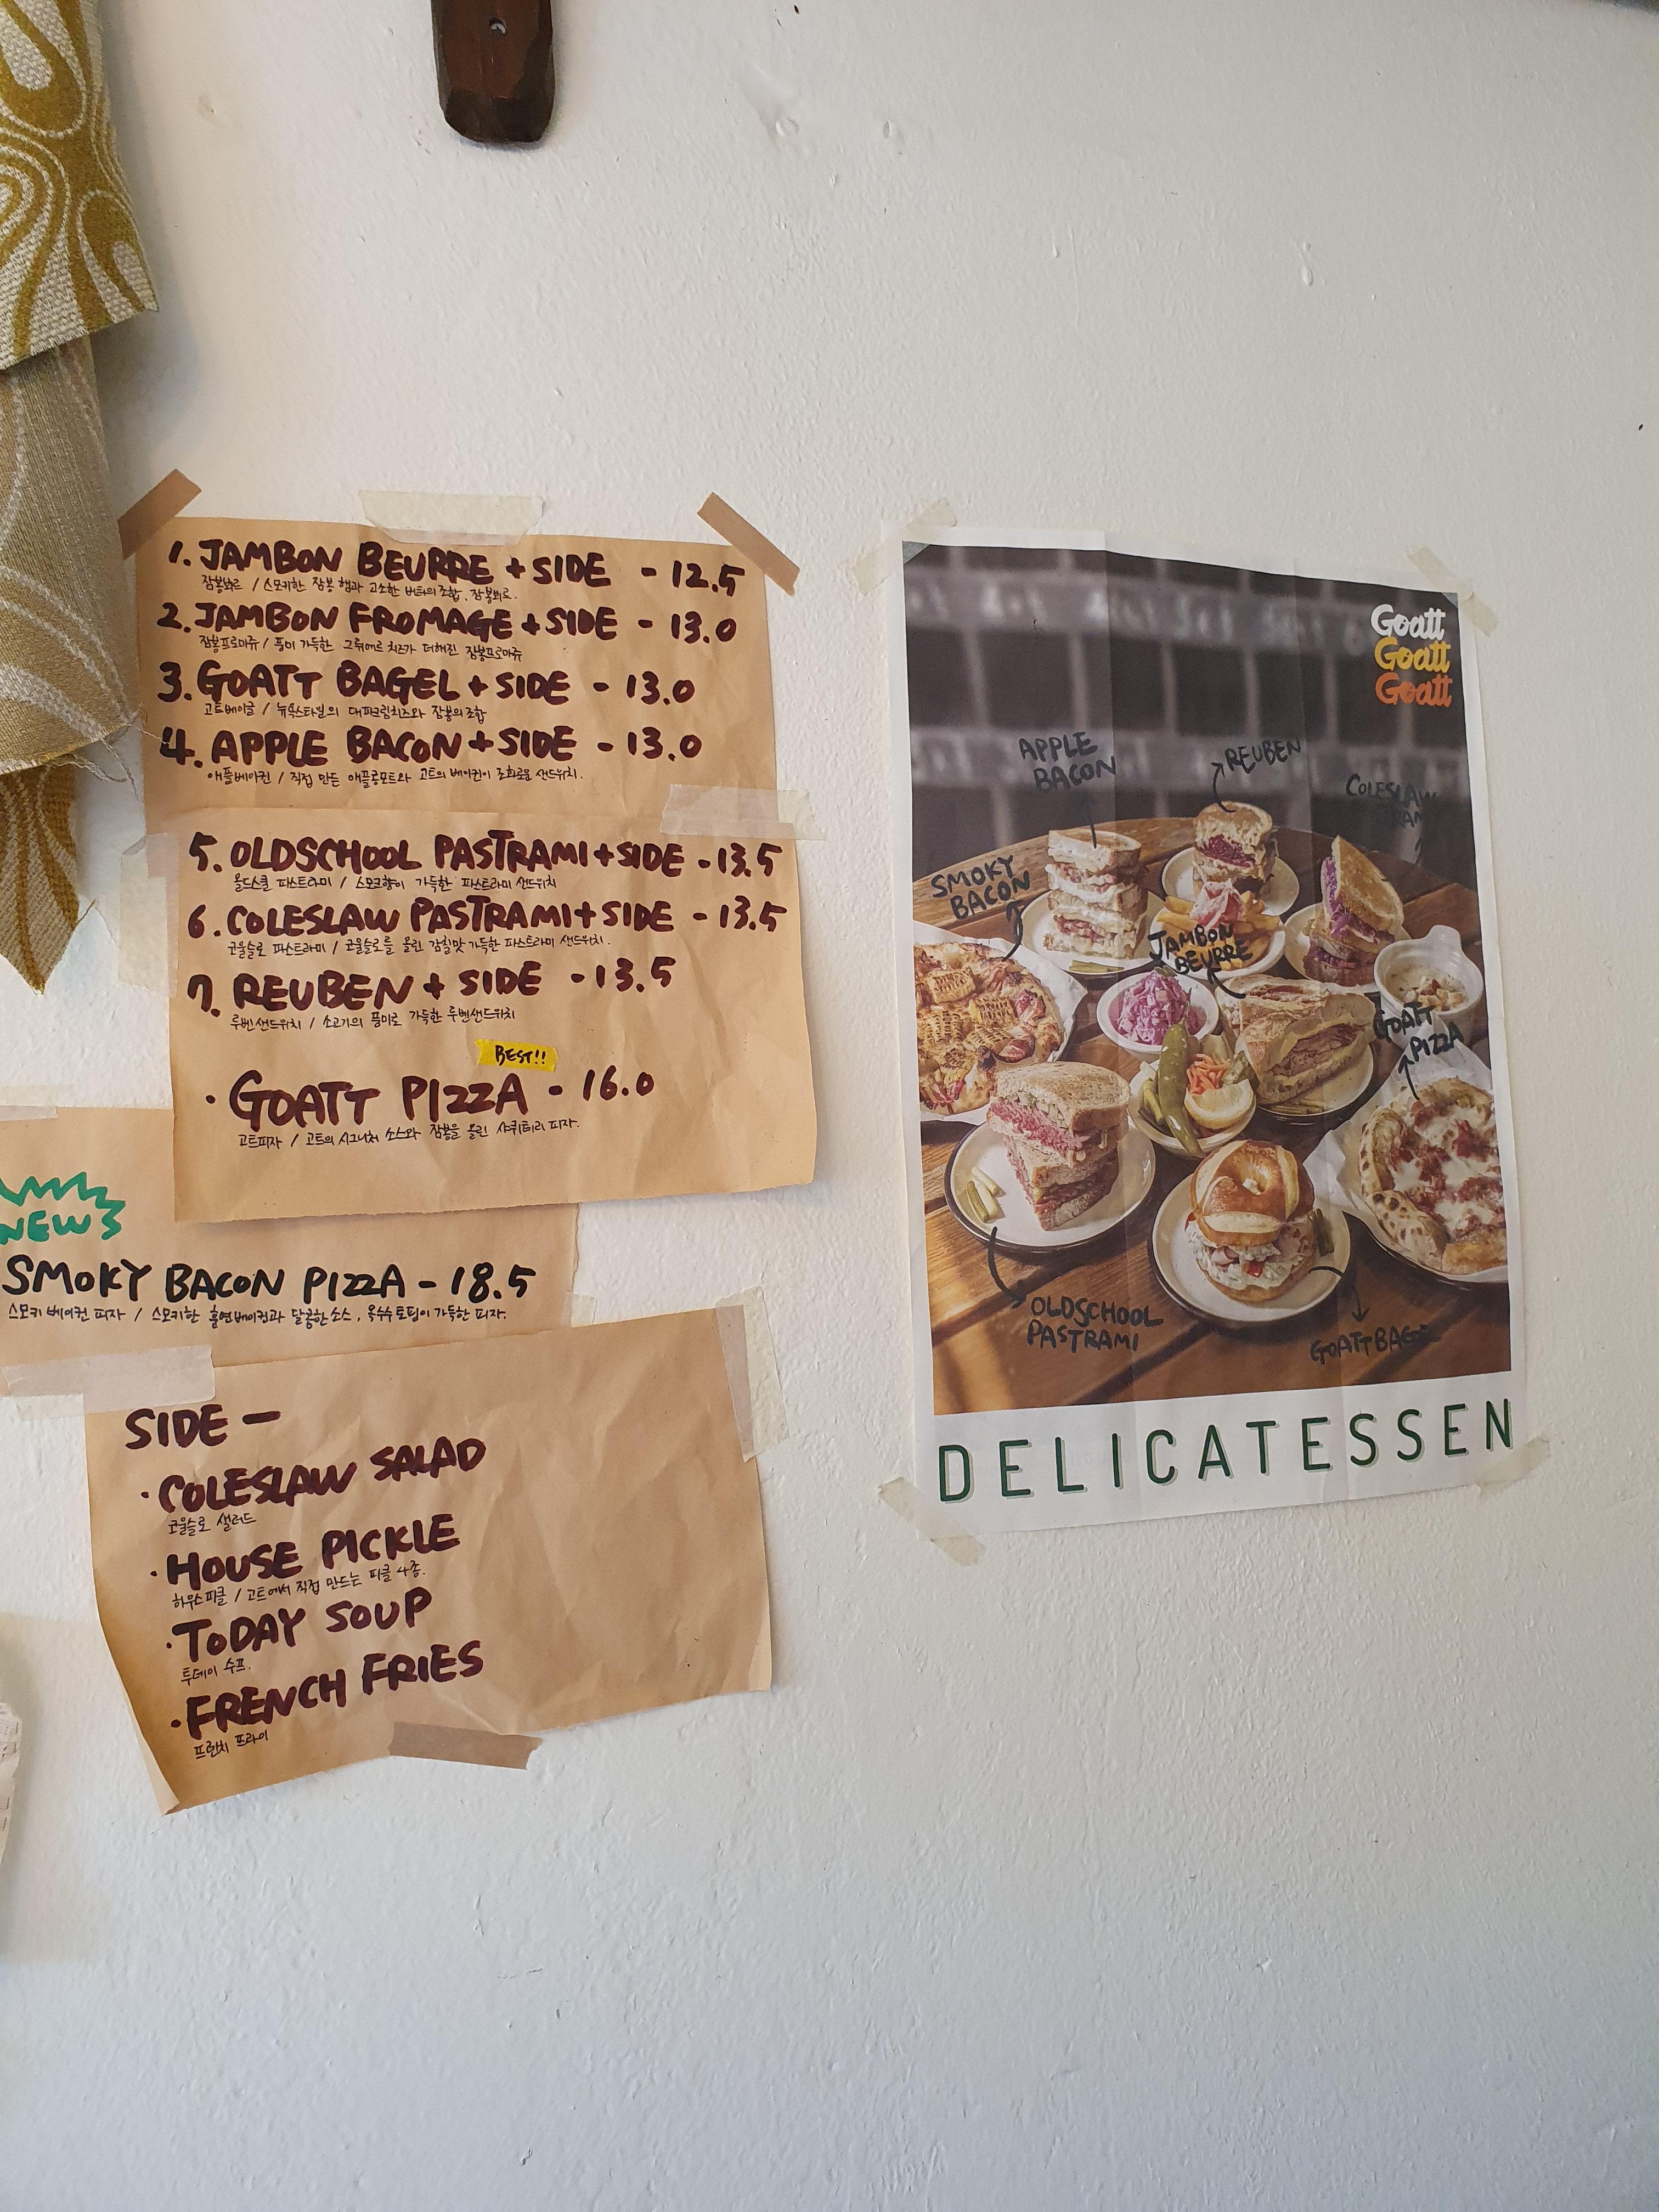 1. JAMBON BEURRE + SIDE - 12.5
잠봉뵈르 / 스모키한 잠봉 햄과 고소한 버터의 조합, 잠봉뵈르.
2. JAMBON FROMAGE + SIDE - 13.0
잠봉프로마쥬 / 풍미 가득한 그뤼에르 치즈가 더해진 잠봉프로마쥬
3. GOATT BAGEL + SIDE - 13.0
고트베이글 / 뉴욕스타일의 대파크림치즈와 잠봉의 조합
4. APPLE BACON + SIDE - 13.0
애플베이컨 / 직접 만든 애플콩포트와 고트의 베이컨이 조화로운 샌드위치.
5. OLDSCHOOL PASTRAMI + SIDE - 13.5
올드스쿨 파스트라미 / 스모크향이 가득한 파스트라미 샌드위치
6. COLESLAW PASTRAMI + SIDE - 13.5
코울슬로 파스트라미 / 코울슬로를 올린 감칠맛 가득한 파스트라미 샌드위치.
7. REUBEN + SIDE - 13.5
루벤샌드위치 / 소고기의 풍미로 가득한 루벤샌드위치
BEST!!
· GOATT PIZZA - 16.0
고트피자 / 고트의 시그니처 소스와 잠봉을 올린 샤퀴테리 피자.
NEW
SMOKY BACON PIZZA - 18.5
스모키 베이컨 피자 / 스모키한 훈연베이컨과 달콤한 소스, 옥수수 토핑이 가득한 피자.
SIDE -
· COLESLAW SALAD
코울슬로 샐러드
· HOUSE PICKLE
하우스피클 / 고트에서 직접 만드는 피클 4종.
· TODAY SOUP
투데이 수프.
· FRENCH FRIES
프렌치 프라이
Goatt
Goatt
Goatt
APPLE
BACON
REUBEN
COLESLAW
SMOKY
BACON
JAMBON
BEURRE
GOATT
PIZZA
OLDSCHOOL
PASTRAMI
GOATT BAGEL
DELICATESSEN